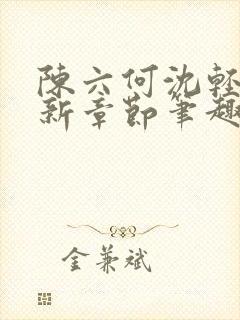 陳六何沈輕
新章節筆趣
金兼斌